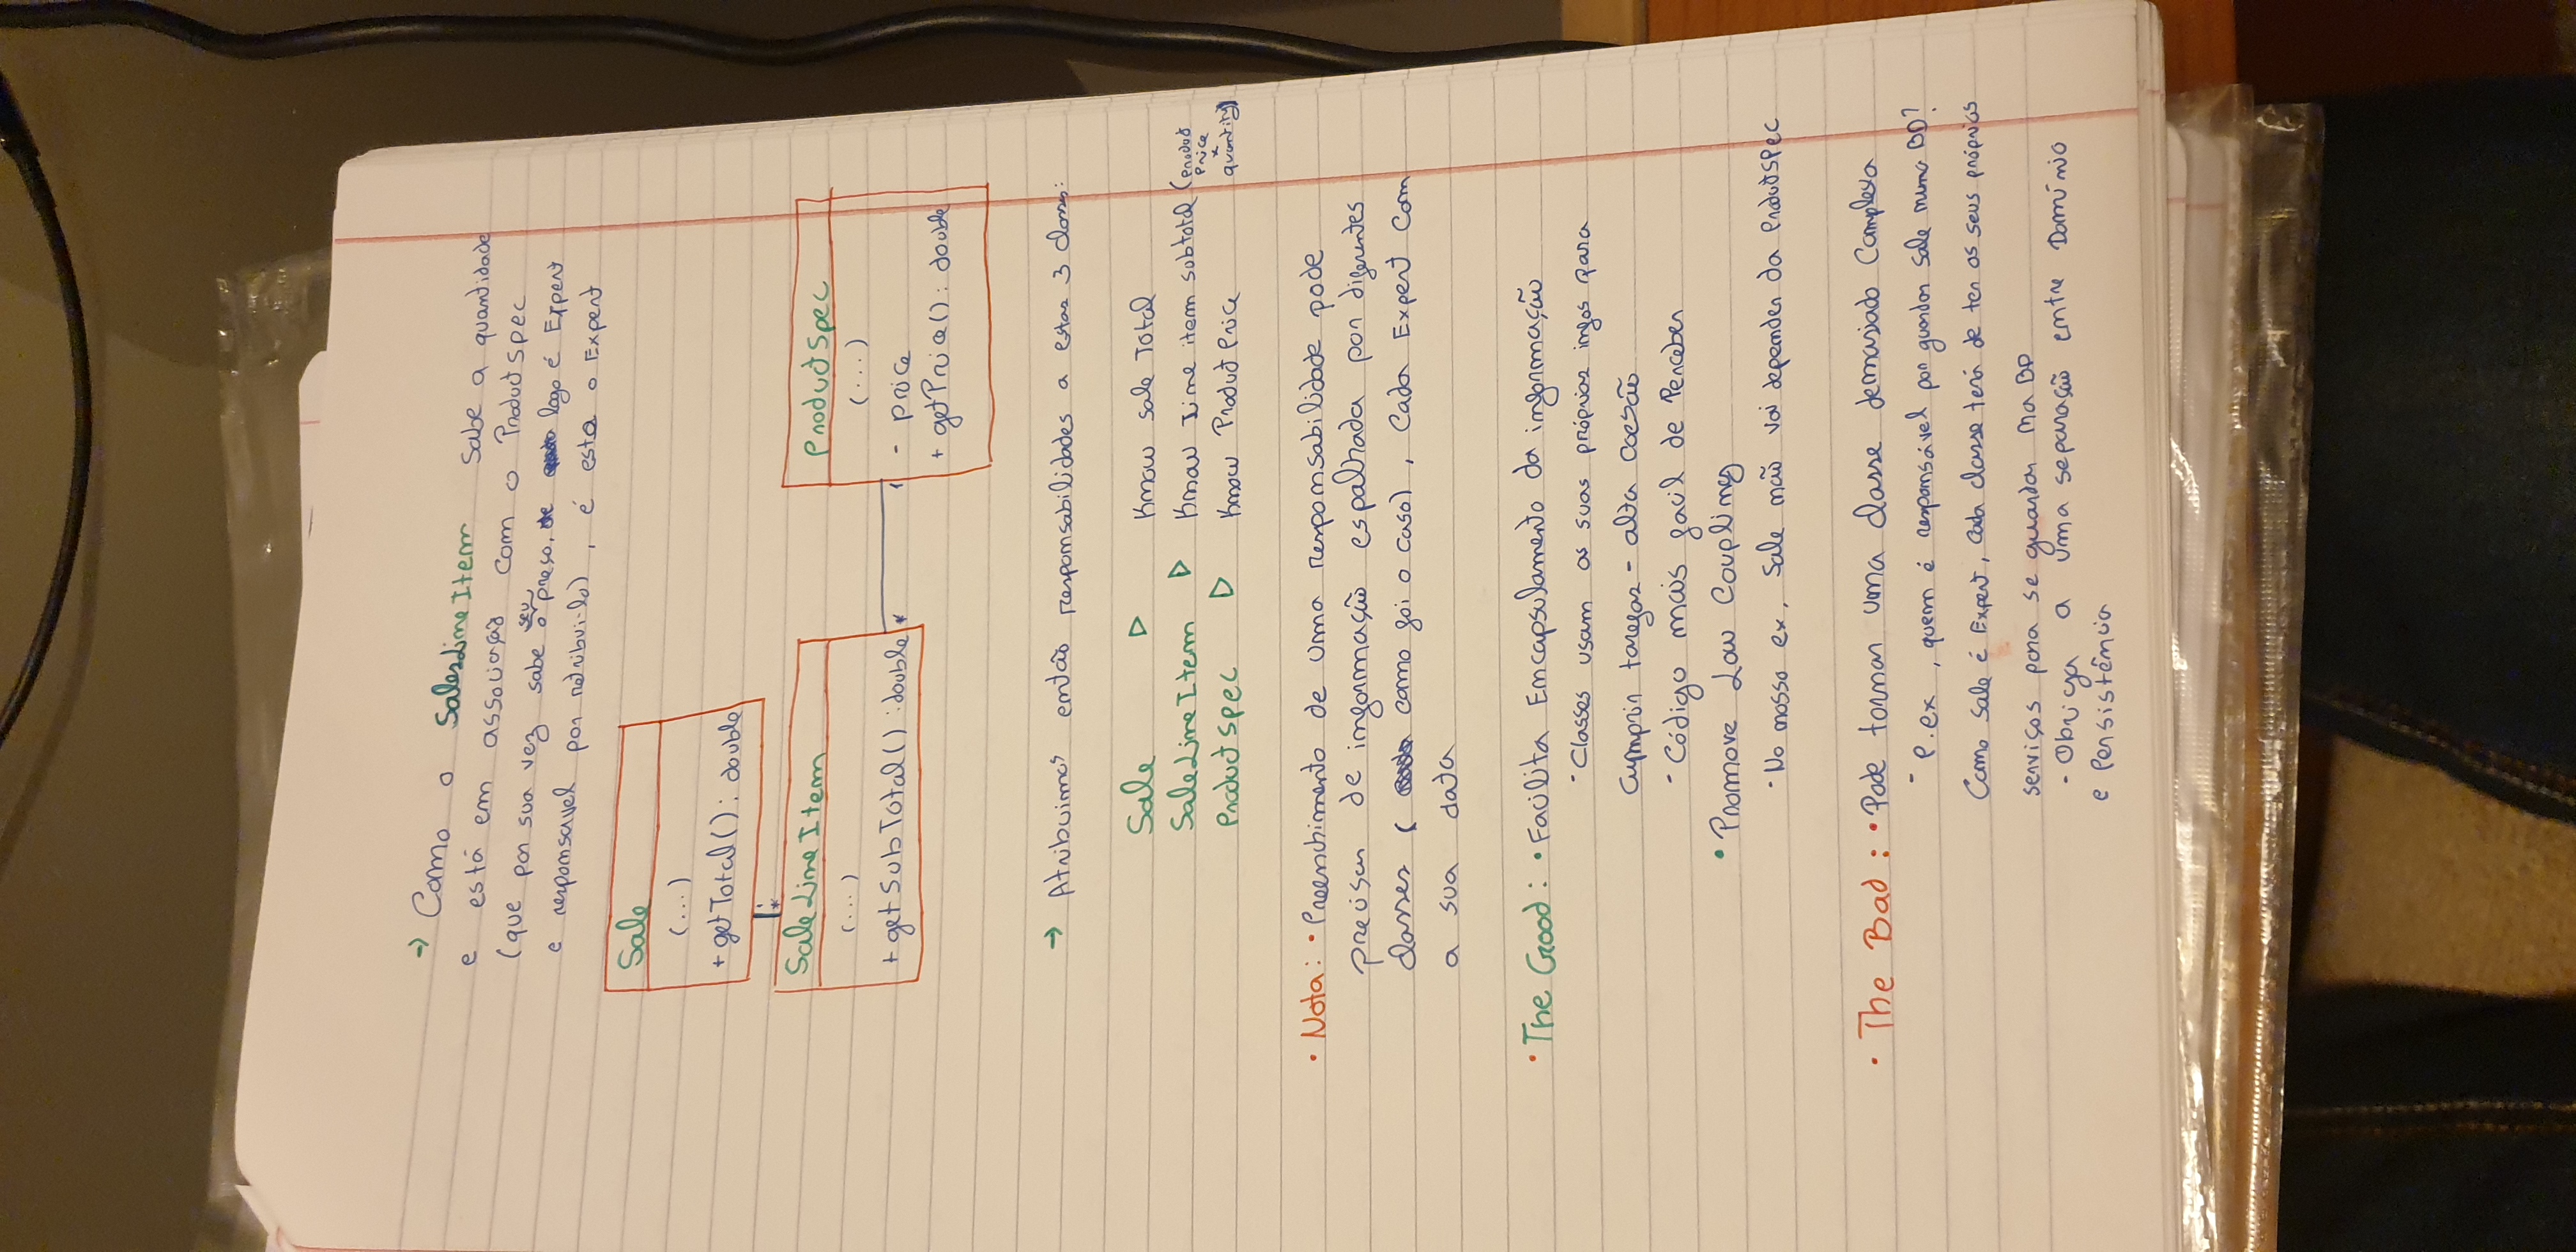 → Como o SalesLineItem sabe a quantidade
e está em associação com o ProductSpec
(que por sua vez sabe o seu preso, logo é Expert
e responsavel por retribui-lo), é esta o Expert
Sale
(...)
+ getTotal(): double
*
SaleLineItem
(...)
+ getSubTotal() : double
* 1
ProductSpec
(...)
- price
+ getPrice(): double
→ Atribuimos então responsabilidades a estas 3 classes:
Sale ▷ Know sale Total
SaleLineItem ▷ Know Line item subtotal (product price × quantity)
ProductSpec ▷ Know Product Price
• Nota: • Preenchimento de uma responsabilidade pode
precisar de informação espalhada por diferentes
classes ( como foi o caso), Cada Expert com
a sua data
• The Good: • Facilita Encapsulamento da informação
- Classes usam as suas próprias infos para
cumprir tarefas - alta coesão
- Código mais facil de Perceber
• Promove Low Coupling
- No nosso ex, Sale não vai depender da ProductSpec
• The Bad: • Pode tornar uma classe demasiado Complexa
- P.ex, quem é responsável por guardar Sale numa BD?
Como Sale é Expert, Cada classe terá de ter os seus próprios
serviços para se guardar na BD
- Obriga a uma separação entre Domínio
e Persistência